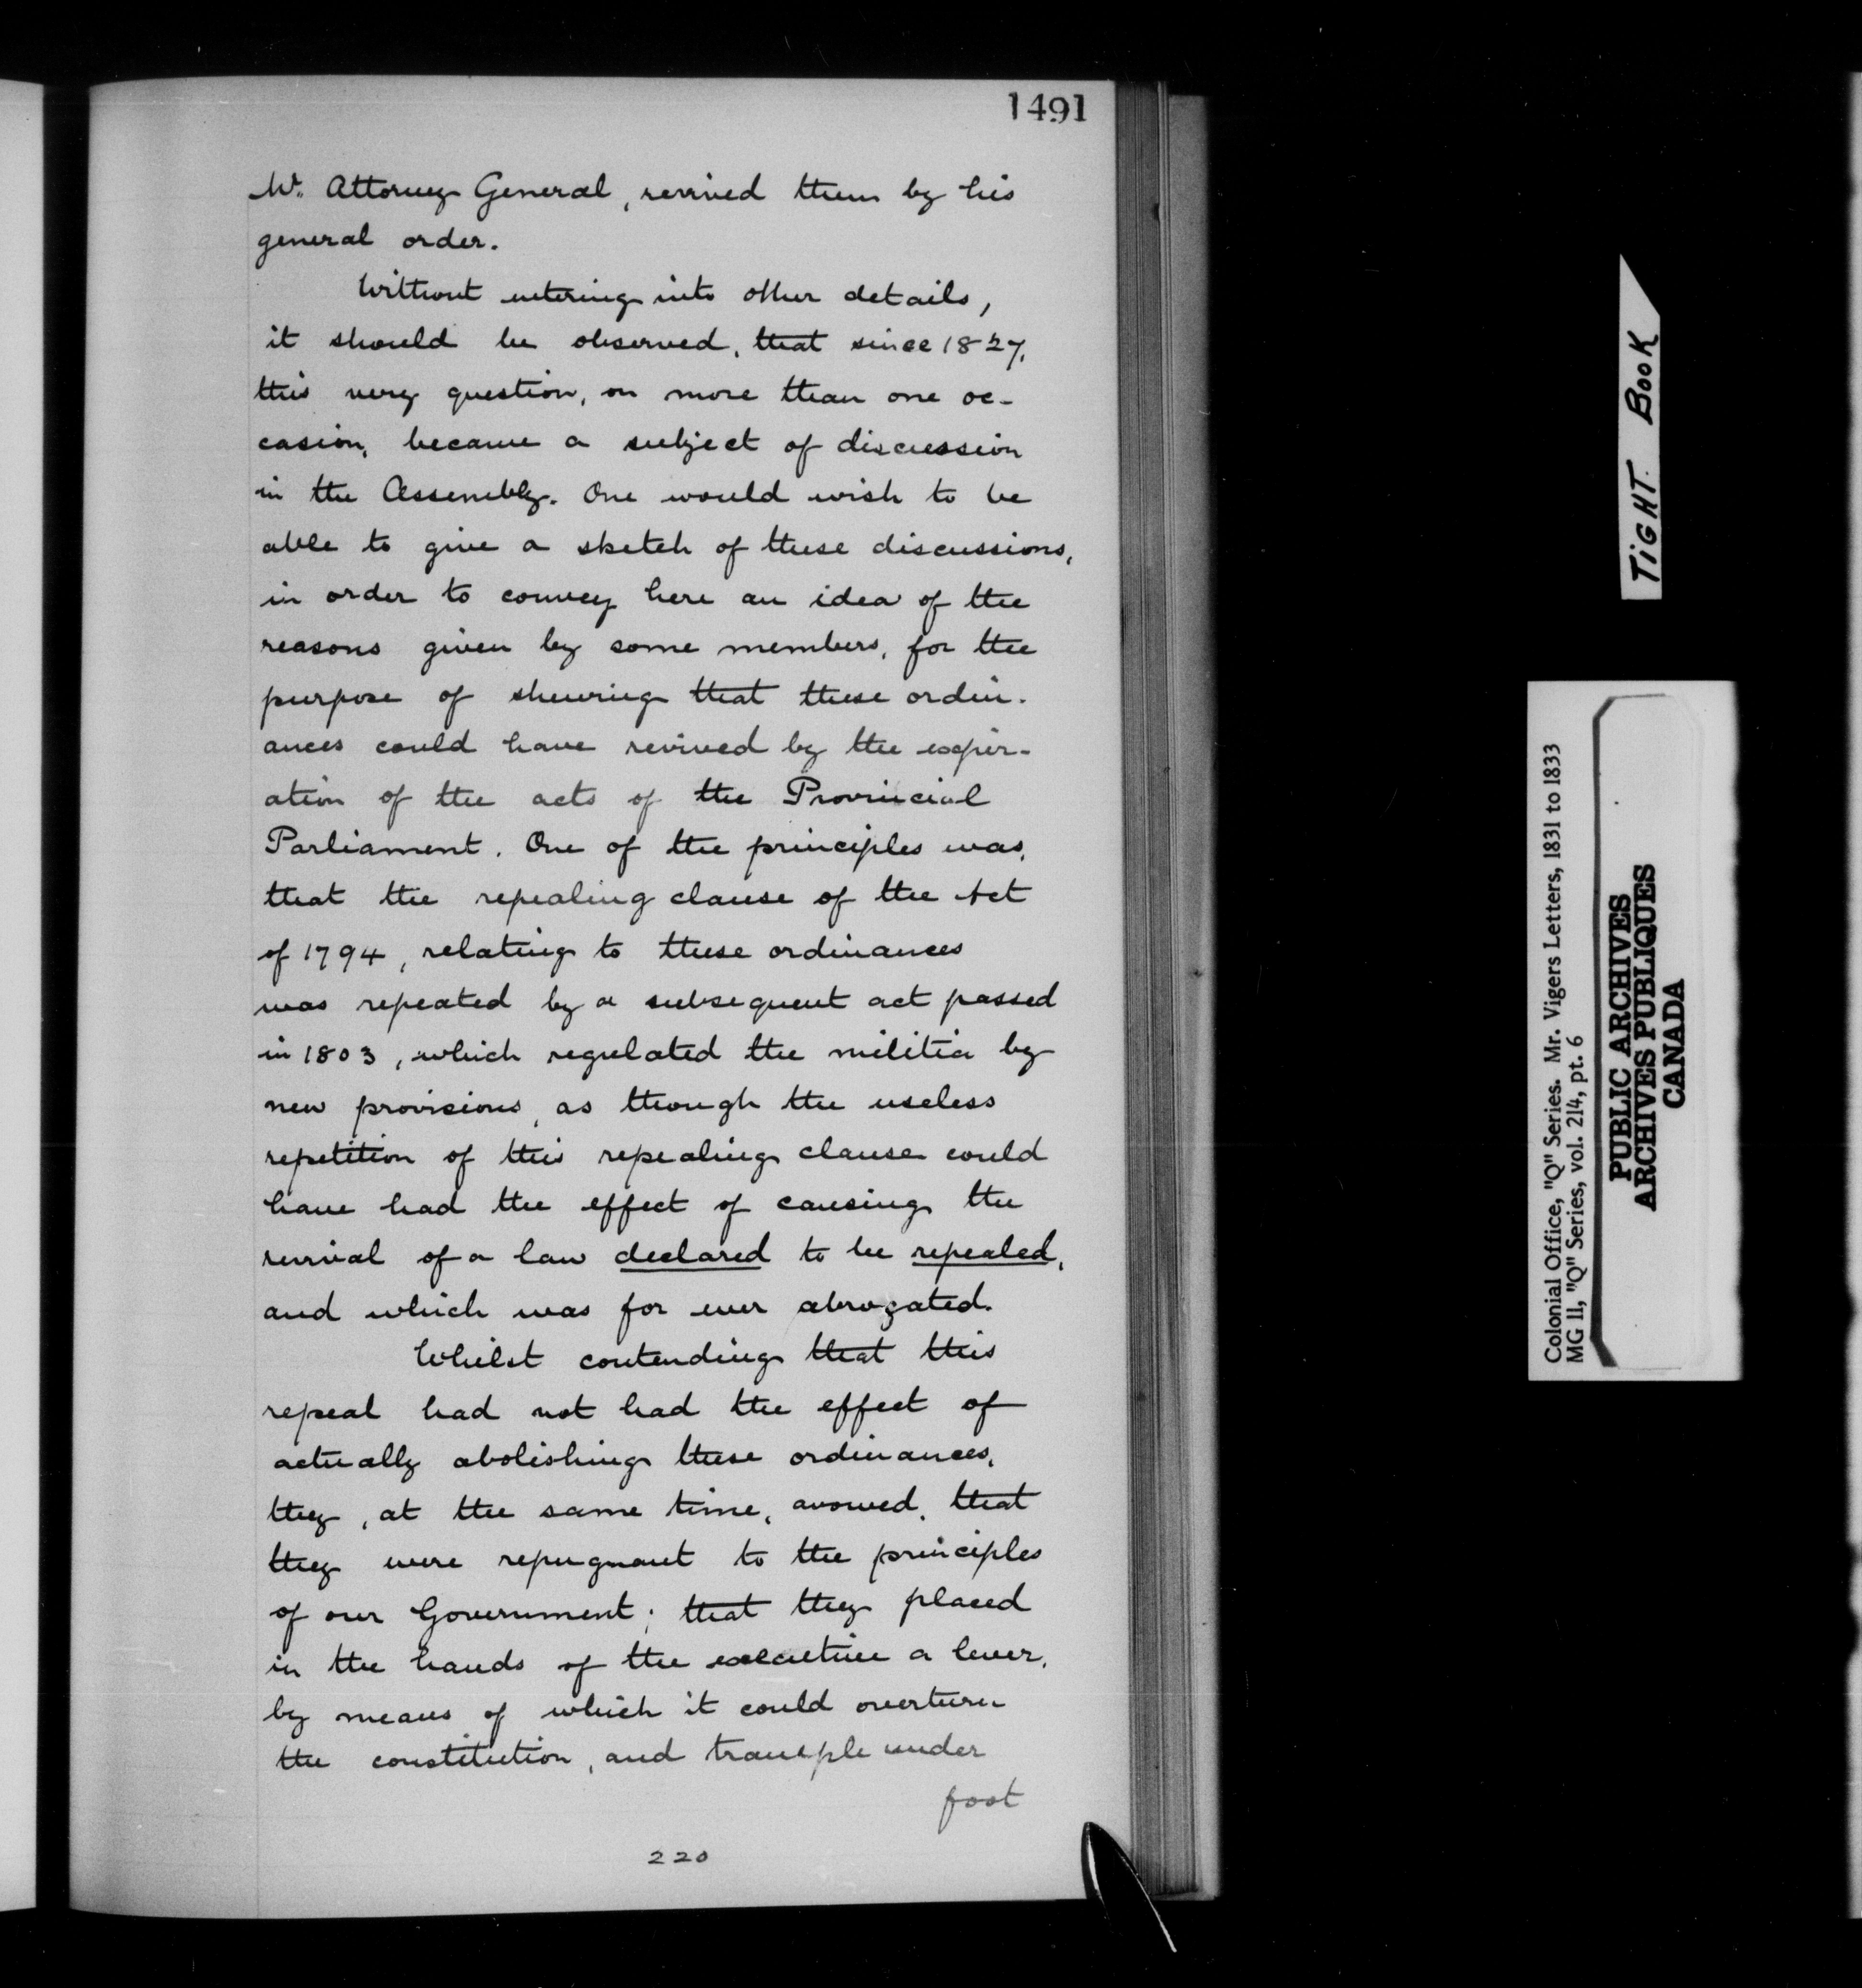 1491
Mr. Attorney General, revived them by his
general order.
Without entering into other details,
it should be observed, that since 1827,
this very question, on more than one oc-
casion, became a subject of discussion
in the Assembly. One would wish to be
able to give a sketch of these discussions,
in order to convey here an idea of the
reasons given by some members, for the
purpose of shewing that these ordin-
ances could have revived by the expir-
ation of the acts of the Provincial
Parliament. One of the principles was,
that the repealing clause of the Act
of 1794, relating to these ordinances
was repeated by a subsequent act passed
in 1803, which regulated the militia by
new provisions, as though the useless
repetition of this repealing clause could
have had the effect of causing the
revival of a law declared to be repealed,
and which was for ever abrogated.
Whilst contending that this
repeal had not had the effect of
actually abolishing these ordinances,
they, at the same time, avowed, that
they were repugnant to the principles
of our Government; that they placed
in the hands of the executive a lever,
by means of which it could overturn
the constitution, and trample under
foot
220
TIGHT BOOK
Colonial Office, "Q" Series. Mr. Vigers Letters, 1831 to 1833
MG 11, "Q" Series, vol. 214, pt. 6
PUBLIC ARCHIVES
ARCHIVES PUBLIQUES
CANADA